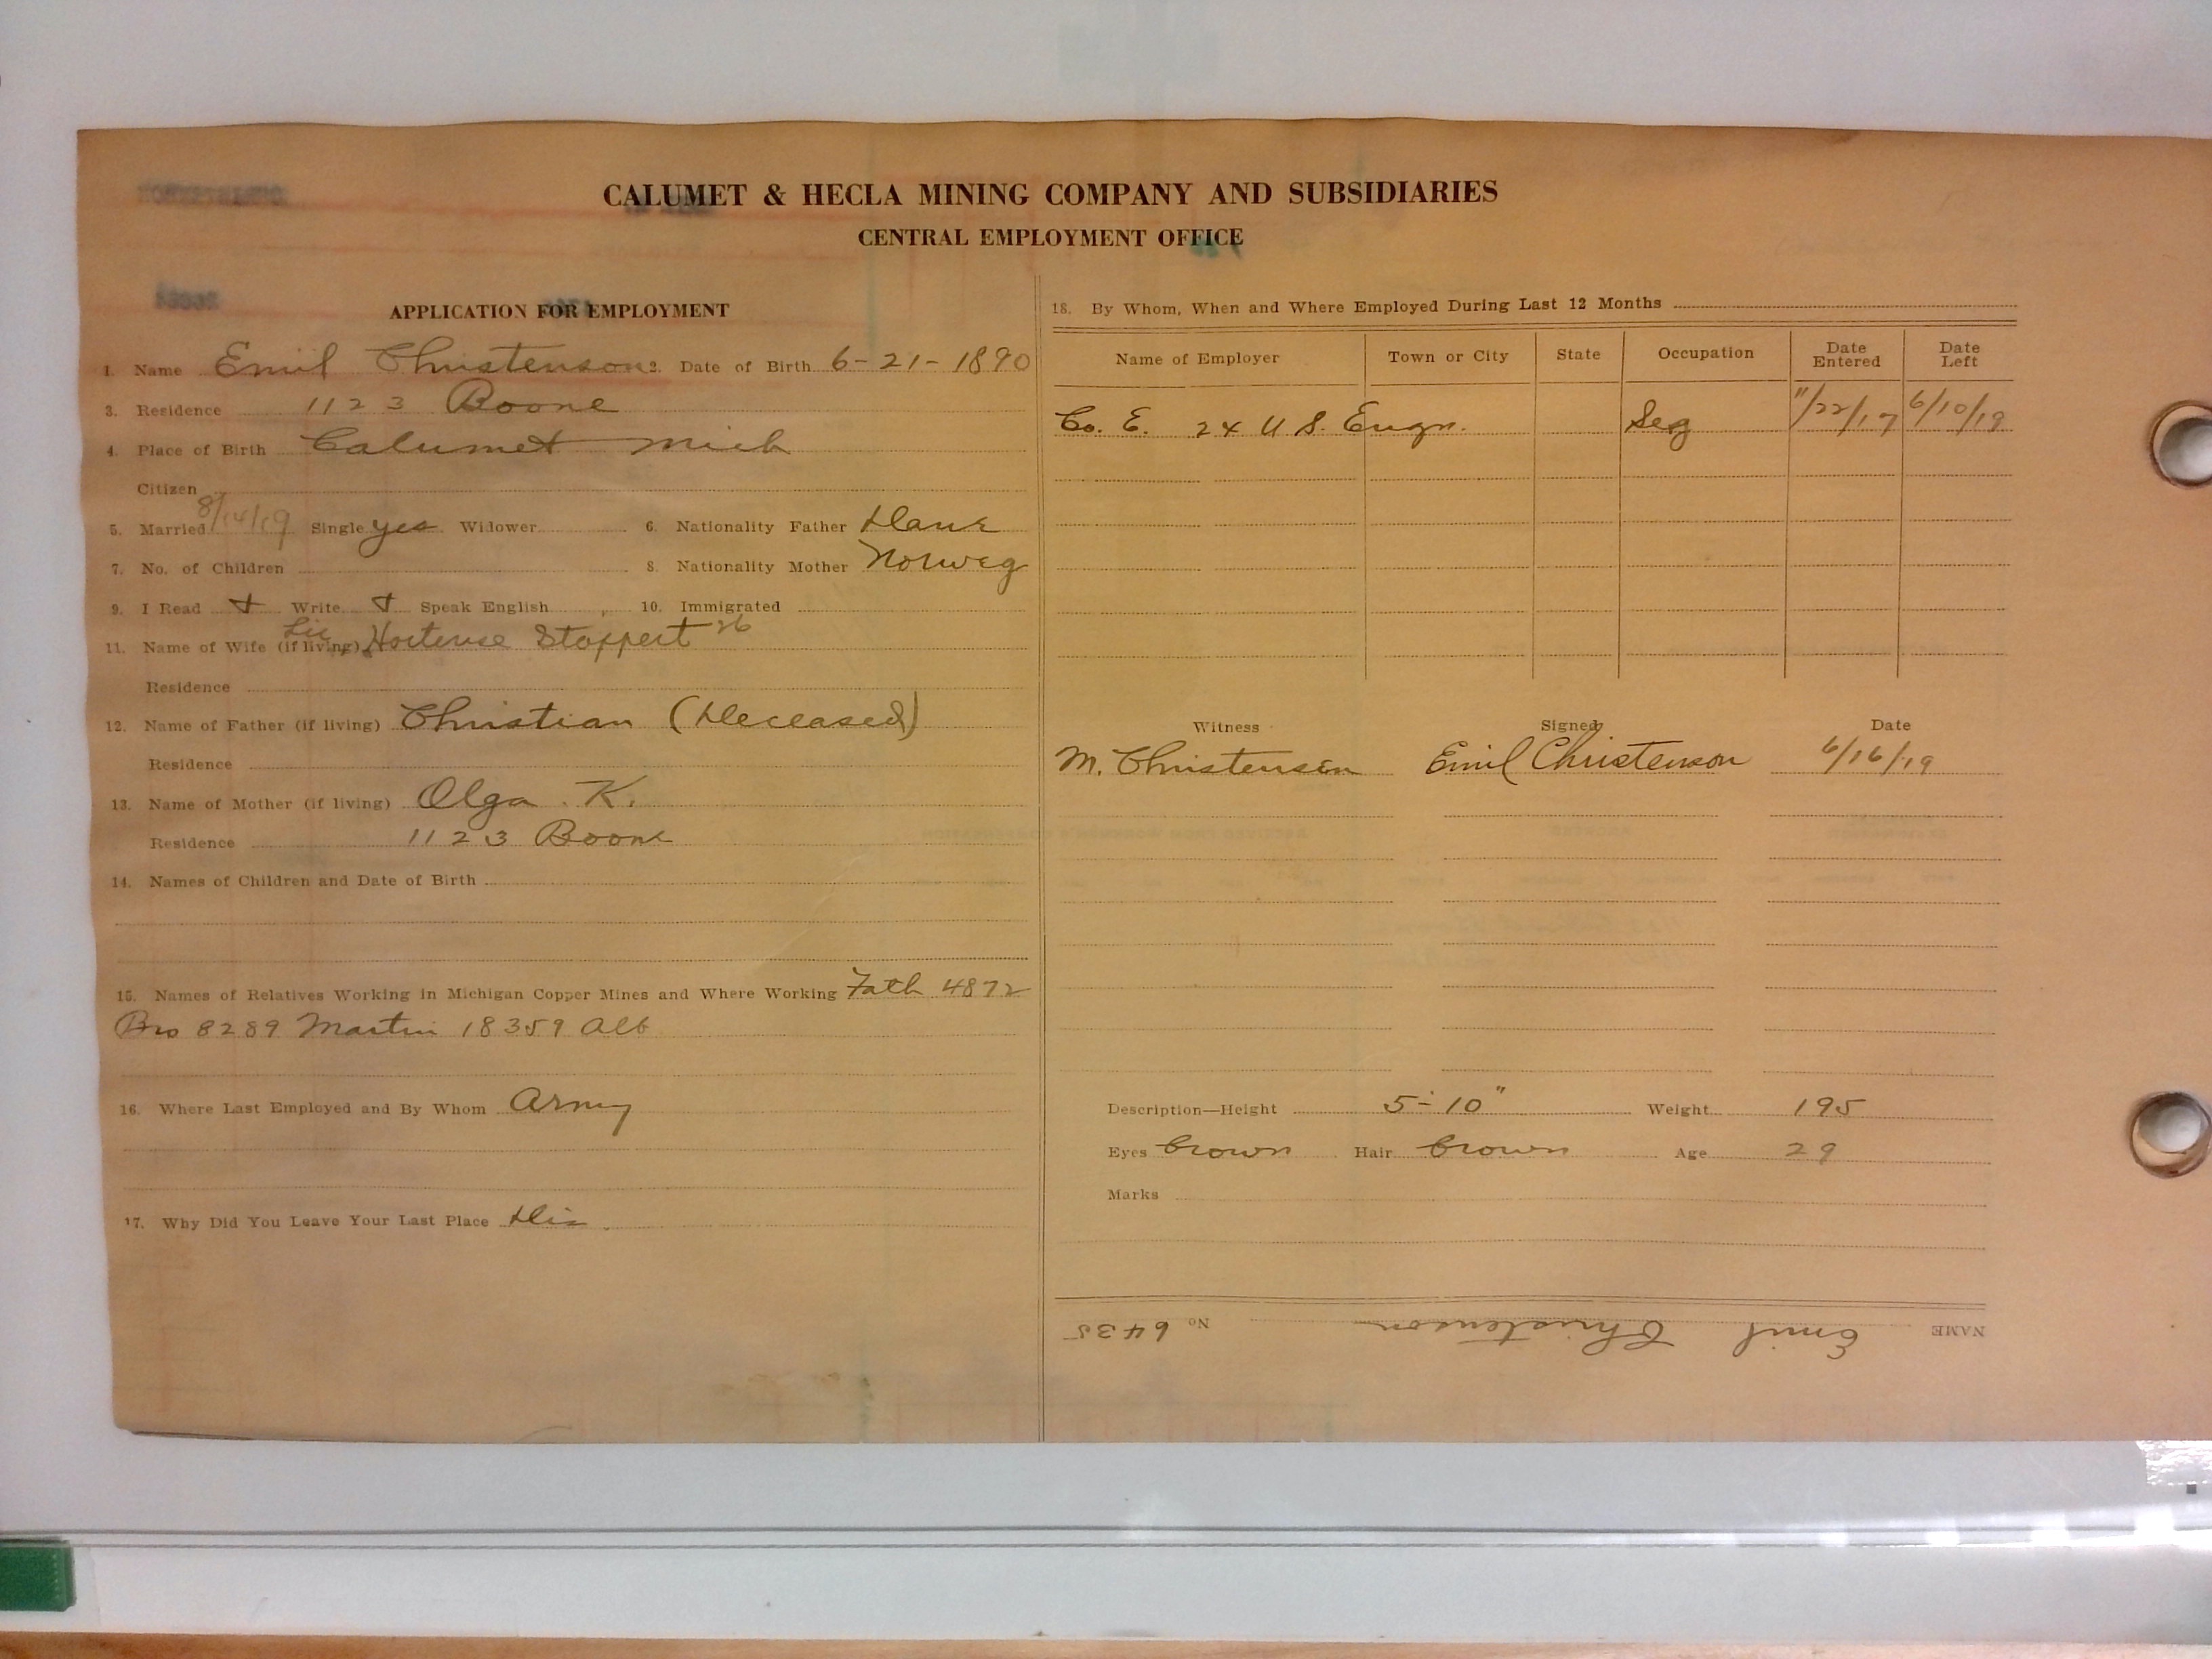 CALUMET & HECLA MINING COMPANY AND SUBSIDIARIES
CENTRAL EMPLOYMENT OFFICE
APPLICATION FOR EMPLOYMENT
1. Name Emil Christenson 2. Date of Birth 6-21-1890
3. Residence 1123 Boone
4. Place of Birth Calumet Mich
Citizen
5. Married 8/14/19 Single yes Widower 6. Nationality Father Dane
7. No. of Children 8. Nationality Mother Norweg
9. I Read + Write + Speak English 10. Immigrated
11. Name of Wife (if living) Lic Hortense Stoppert 26
Residence
12. Name of Father (if living) Christian (Deceased)
Residence
13. Name of Mother (if living) Olga K.
Residence 1123 Boone
14. Names of Children and Date of Birth
15. Names of Relatives Working in Michigan Copper Mines and Where Working Fath 4872
Bro 8289 Martin 18359 Alb
16. Where Last Employed and By Whom Army
17. Why Did You Leave Your Last Place Dis
18. By Whom, When and Where Employed During Last 12 Months
Name of Employer Town or City State Occupation Date Entered Date Left
Co. E. 24 U S. Engn. Seg 11/22/17 6/10/19
Witness Signed Date
M. Christensen Emil Christenson 6/16/19
Description—Height 5-10" Weight 195
Eyes brown Hair brown Age 29
Marks
NAME Emil Christenson No 6435